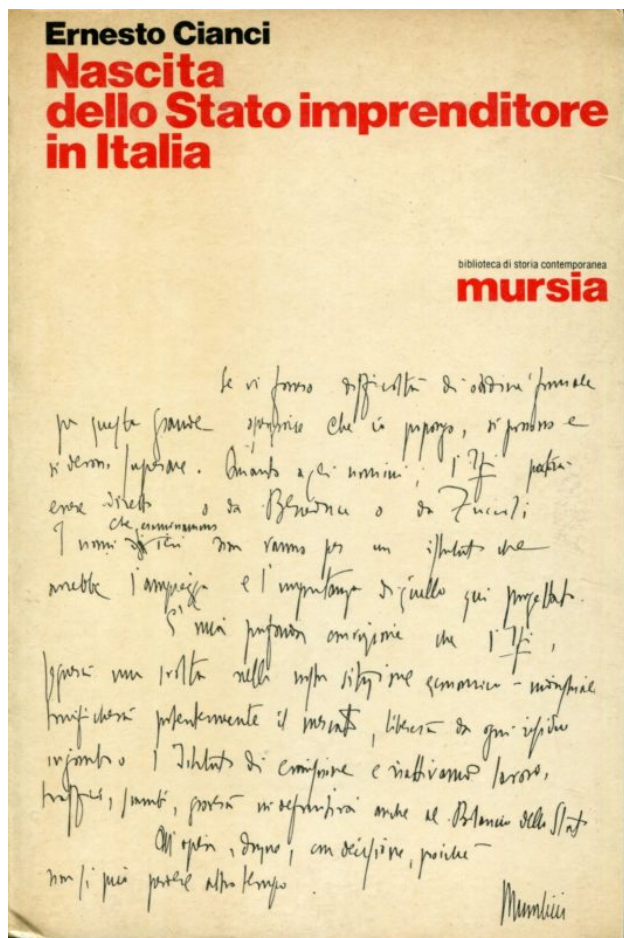 Ernesto Cianci
Nascita
dello Stato imprenditore
in Italia
biblioteca di storia contemporanea
mursia
Se vi fosse difficoltà di ordine formale
per questa grande operazione che io propongo, si possono e
si devono superare. Quanto agli uomini, l'
essere diretto o da Beneduce o da
I nomi che
avrebbe l'ampiezza e l'importanza di quello qui progettato.
E' mia profonda convinzione che l'
una svolta nella nostra situazione economico-industriale
potentemente il mercato, libererà da ogni
ingombro l'Istituto di emissione e lavoro,
traffici, scambi, gioverà in definitiva anche al Bilancio dello Stato
All'opera, dunque, con decisione, poiché
non si può perdere altro tempo.